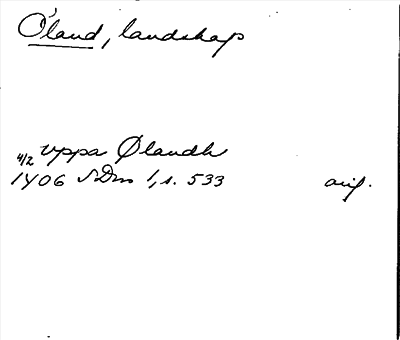 Öland, landskap
4/2 vppa Ølandh
1406 SDns 1, s. 533 avs.